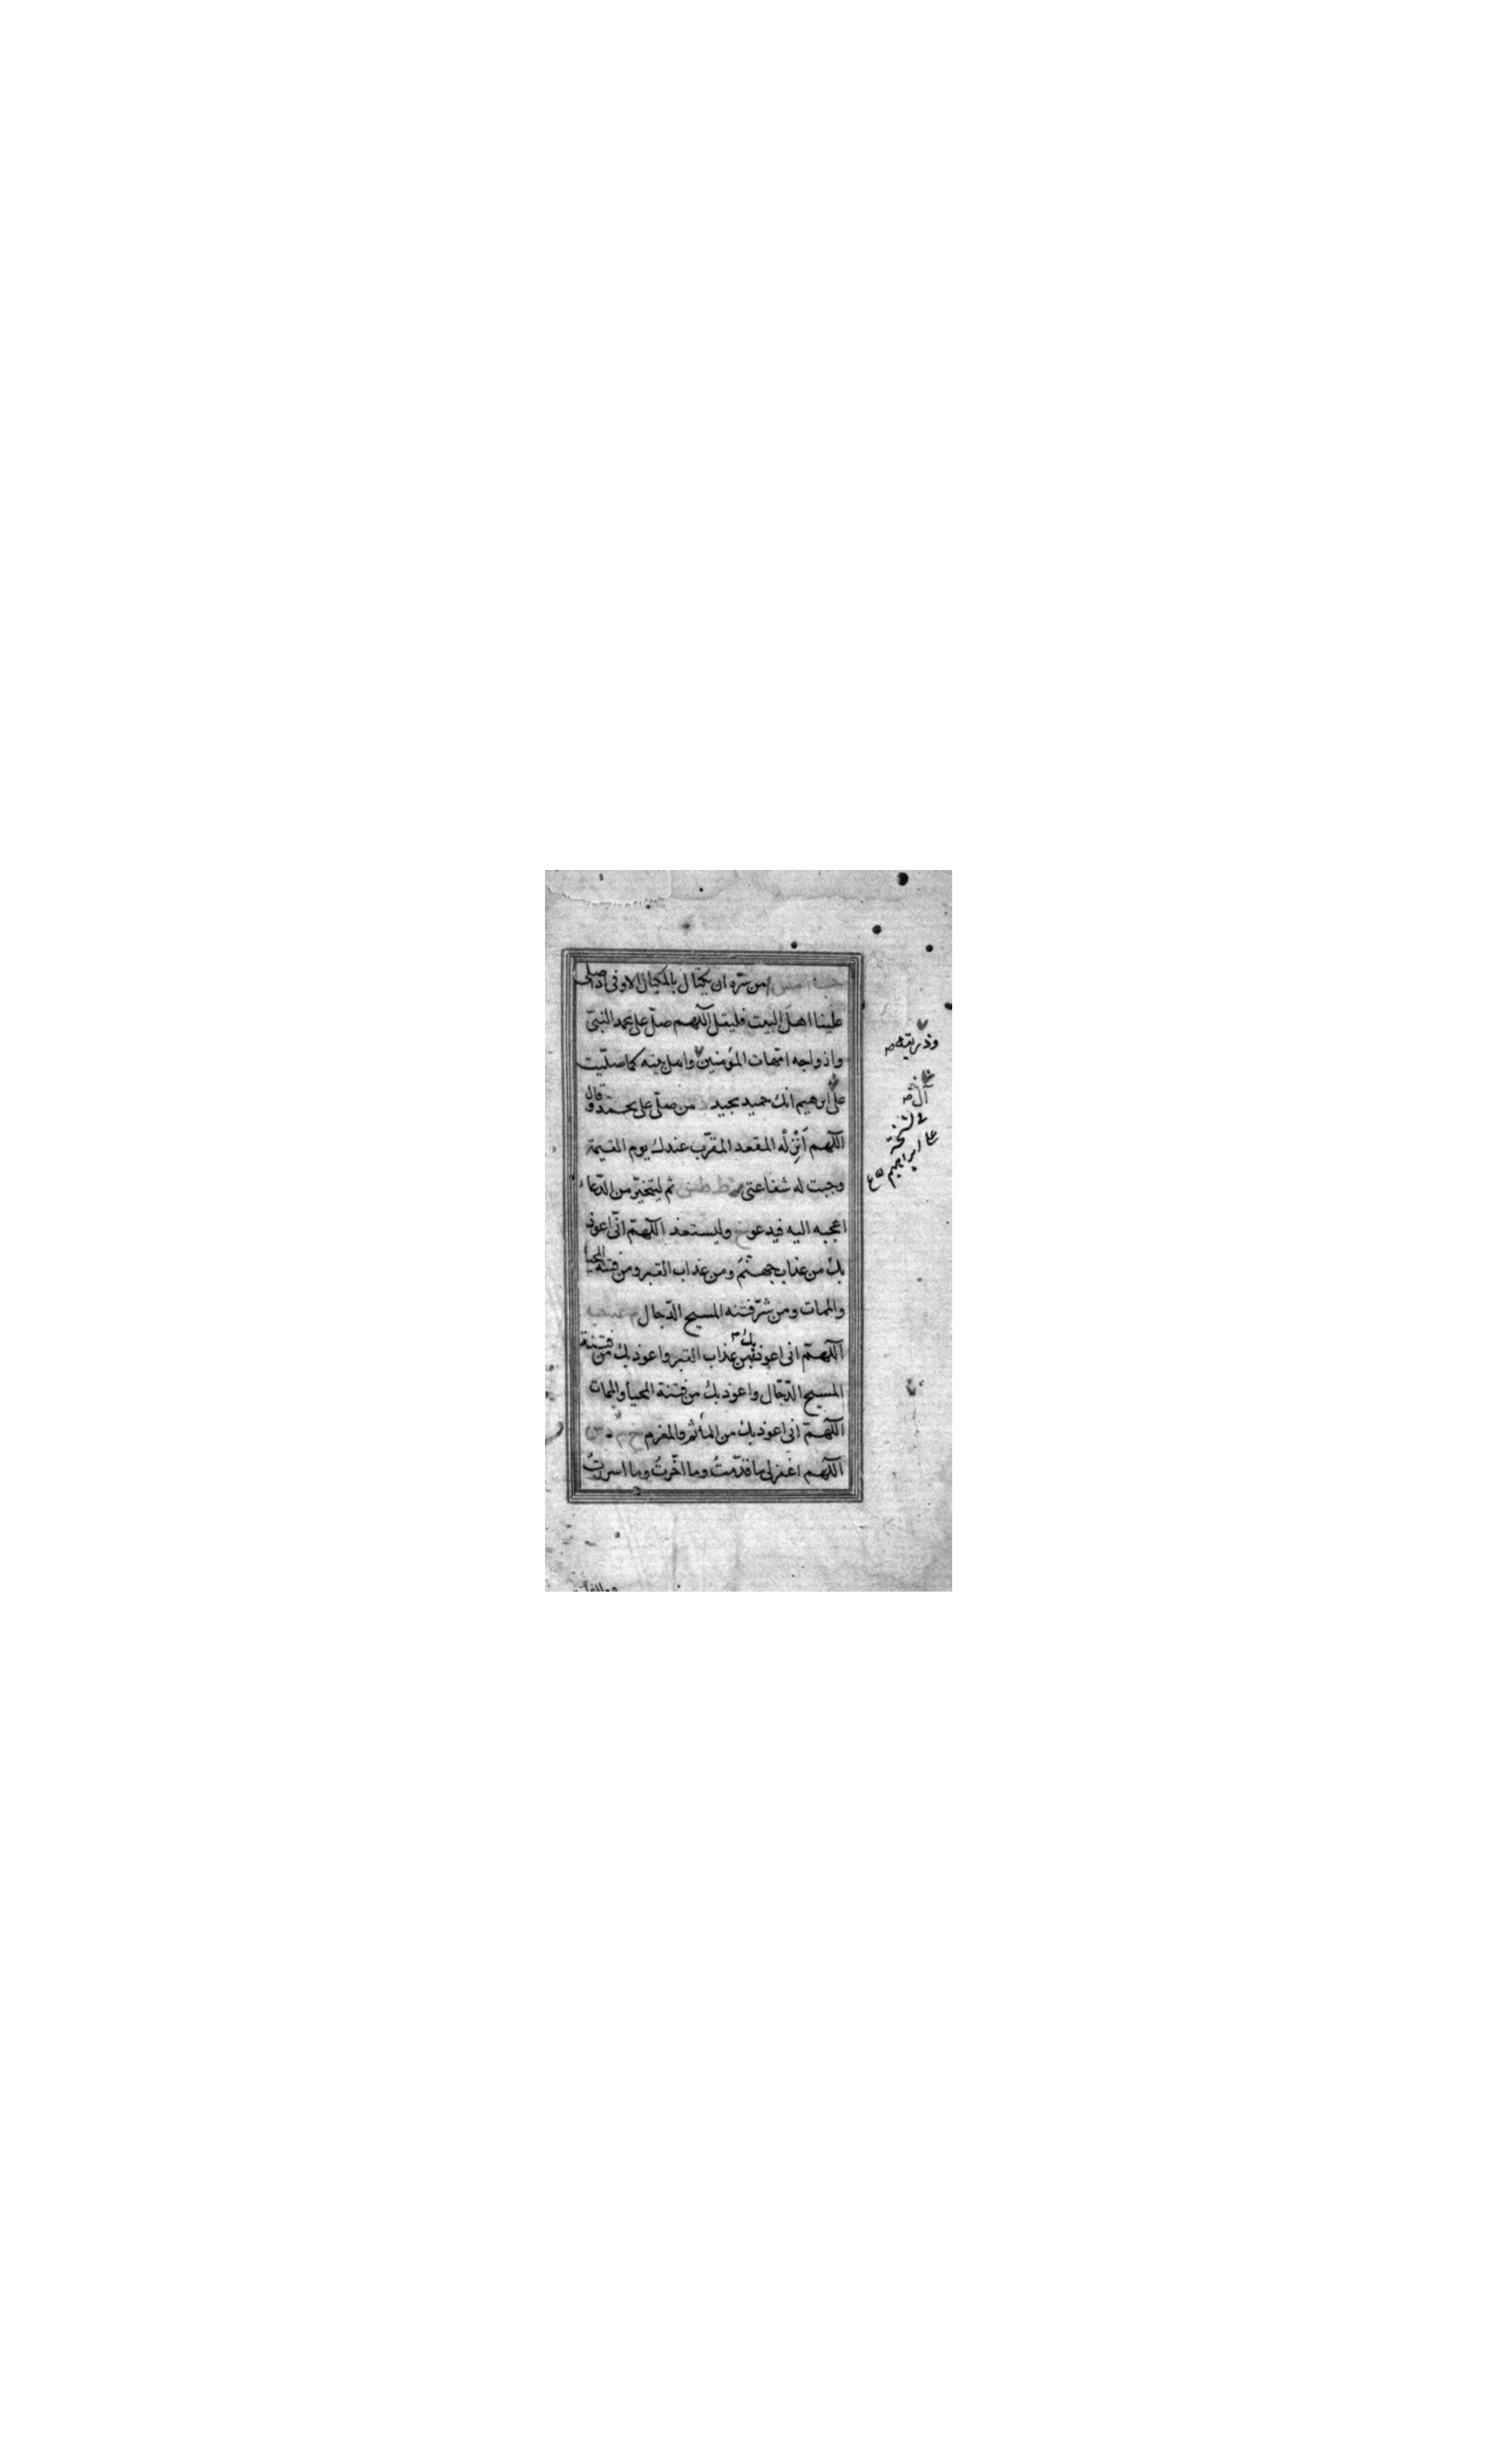 من سره ان يكتال بالمكيال الاوفى اذا صلى
علينا اهل البيت فليقل اللهم صل على محمد النبىّ
وازواجه امّهات المؤمنين واهل بيته كما صلّيت
على ابرهيم انك حميد مجيد من صلّى على محمد وقال
اللهم اَنْزِلْه المقعد المقرّب عندك يوم القيمة
وجبت له شفاعتى ثم ليتخيّر من الدّعاء
اعجبه اليه فيدعو وليستعذ اللهمّ انّى اعوذ
بك من عذاب جهنّم ومن عذاب القبر ومن فتنة المحيا
والممات ومن شرّ فتنه المسيح الدّجال
اللهمّ انى اعوذ بك من عذاب القبر واعوذ بك من فتنة
المسيح الدّجّال واعوذ بك من فتنة المحيا والممات
اللهمّ انى اعوذ بك من المأثم والمغرم
اللهم اغفر لى ما قدّمتُ وما اخّرتُ وما اسررتُ
وذريته
آل
فى نسخة
على ابراهيم